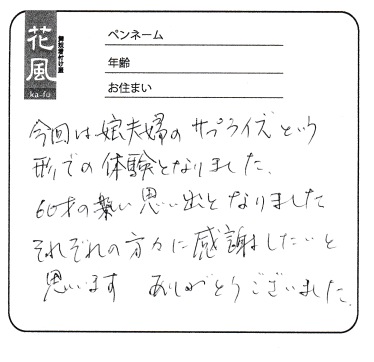 花風
ka-fu
舞妓着付け屋
ペンネーム
年齢
お住まい
今回は娘夫婦のサプライズという
形での体験となりました。
60才の 思い出となりました
それぞれの方々に感謝したいと
思います ありがとうございました。